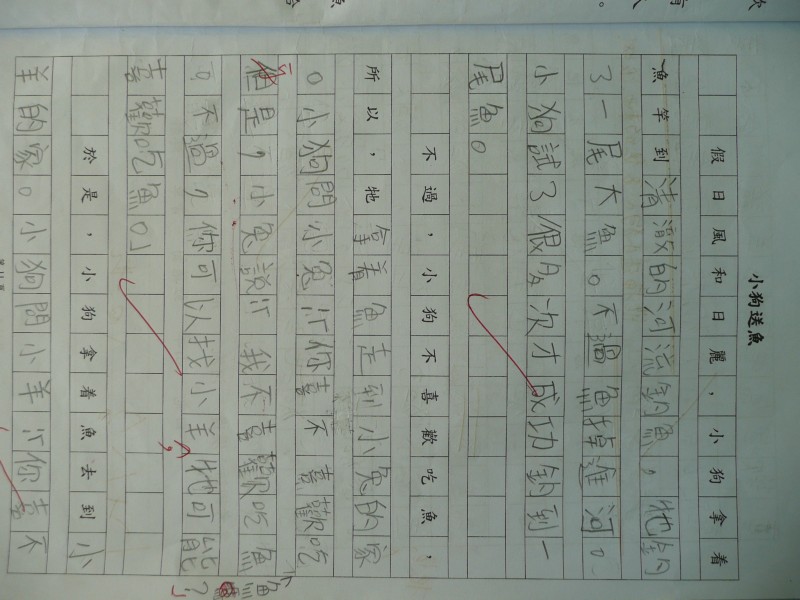 小狗送魚
假日風和日麗，小狗拿着
魚竿到清澈的河流釣魚，牠釣
了一尾大魚。不過魚掉進河。
小狗試了很多次才成功釣到一
尾魚。
不過，小狗不喜歡吃魚，
所以，牠拿着魚走到小兔的家
。小狗問小兔：「你喜不喜歡吃
魚？」
但是，小兔說：「我不喜歡吃魚
。不過，你可以找小羊，牠可能
喜歡吃魚。」
於是，小狗拿着魚去到小
羊的家。小狗問小羊：「你喜不